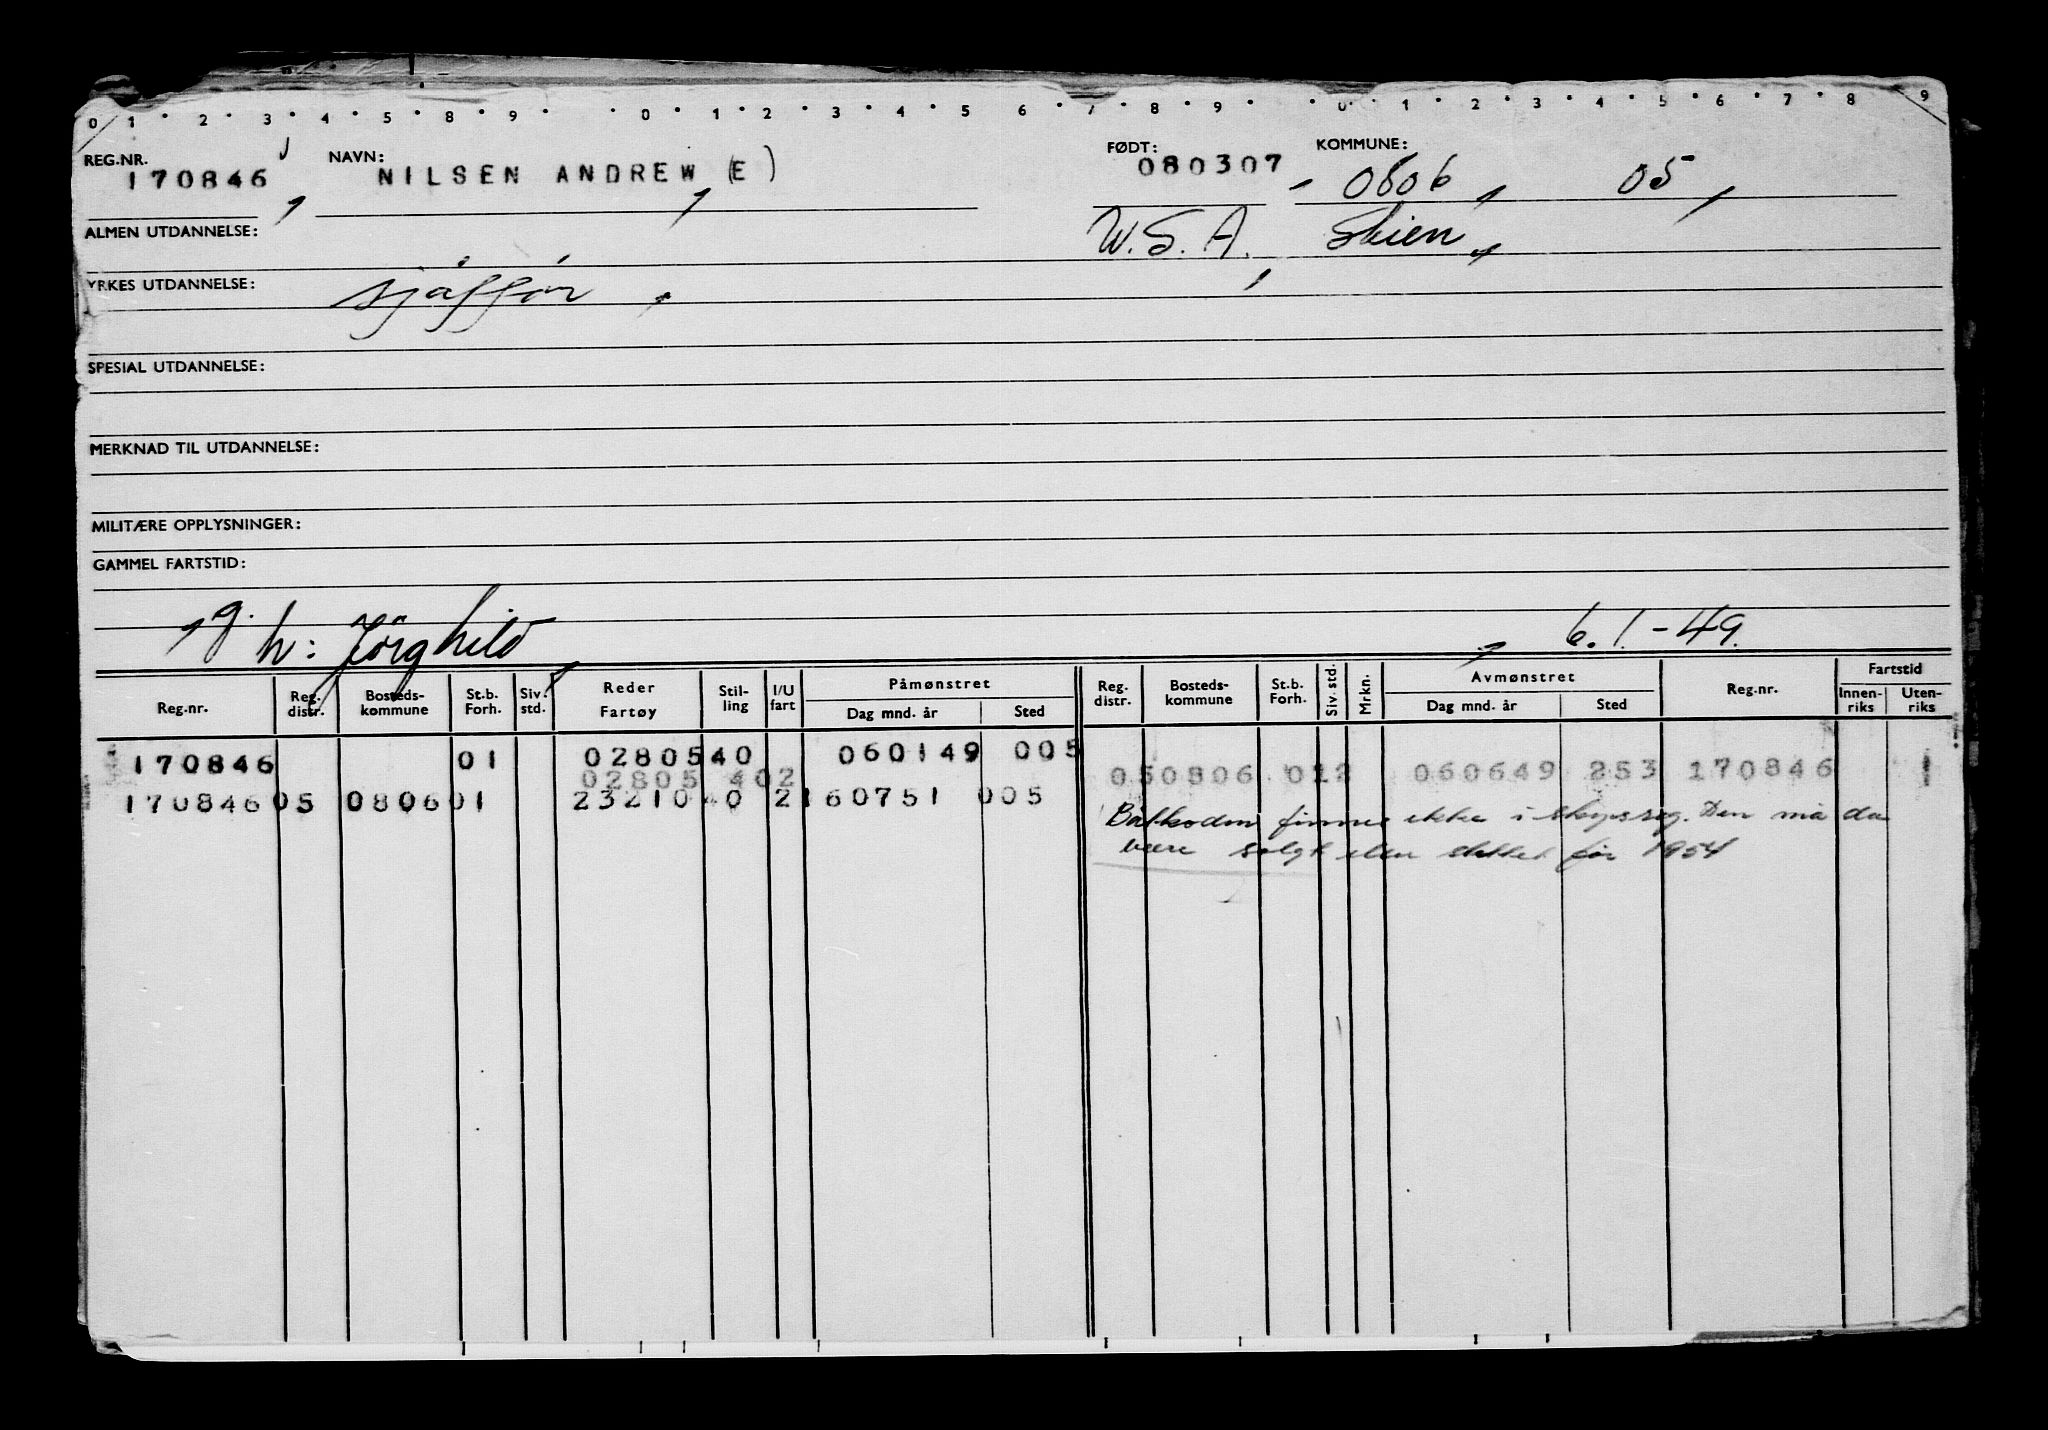 0 1 2 3 4 5 8 9 0 1 2 3 4 5 6 7 8 9 0 1 2 3 4 5 6 7 8 9
REG.NR. NAVN: FØDT: KOMMUNE:
170846 NILSEN ANDREW (E) 080307 0806 05
ALMEN UTDANNELSE: W.S.A. Skien
YRKES UTDANNELSE: sjåffør
SPESIAL UTDANNELSE:
MERKNAD TIL UTDANNELSE:
MILITÆRE OPPLYSNINGER:
GAMMEL FARTSTID:
g. h: Jørghild 6.1-49.
Reg.nr. Reg. distr. Bosteds-kommune St.b. Forh. Siv. std. Reder Fartøy Stil-ling I/U fart Påmønstret Dag mnd. år Sted Reg. distr. Bosteds-kommune St.b. Forh. Siv. std. Mrkn. Avmønstret Dag mnd. år Sted Reg.nr. Fartstid Innen-riks Uten-riks
170846 01 02805 40 060149 005
02805 402 050806 012 060649 253 170846 1
170846 05 0806 01 23210 40 2 160751 005
Båtkoden finnes ikke i skipsreg. Den må da
være solgt eller slettet før 1954